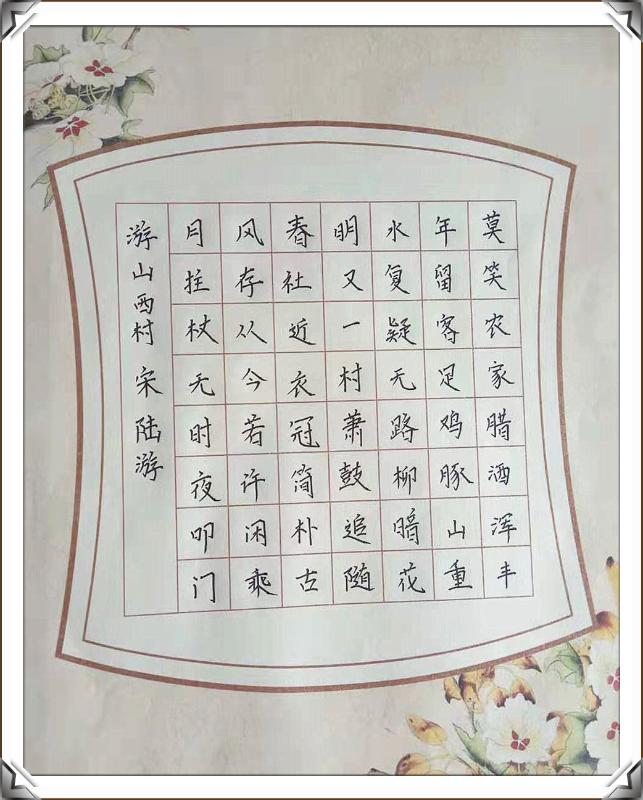 莫笑农家腊酒浑丰
年留客足鸡豚山重
水复疑无路柳暗花
明又一村萧鼓追随
春社近衣冠简朴古
风存从今若许闲乘
月拄杖无时夜叩门
游山西村 宋 陆游